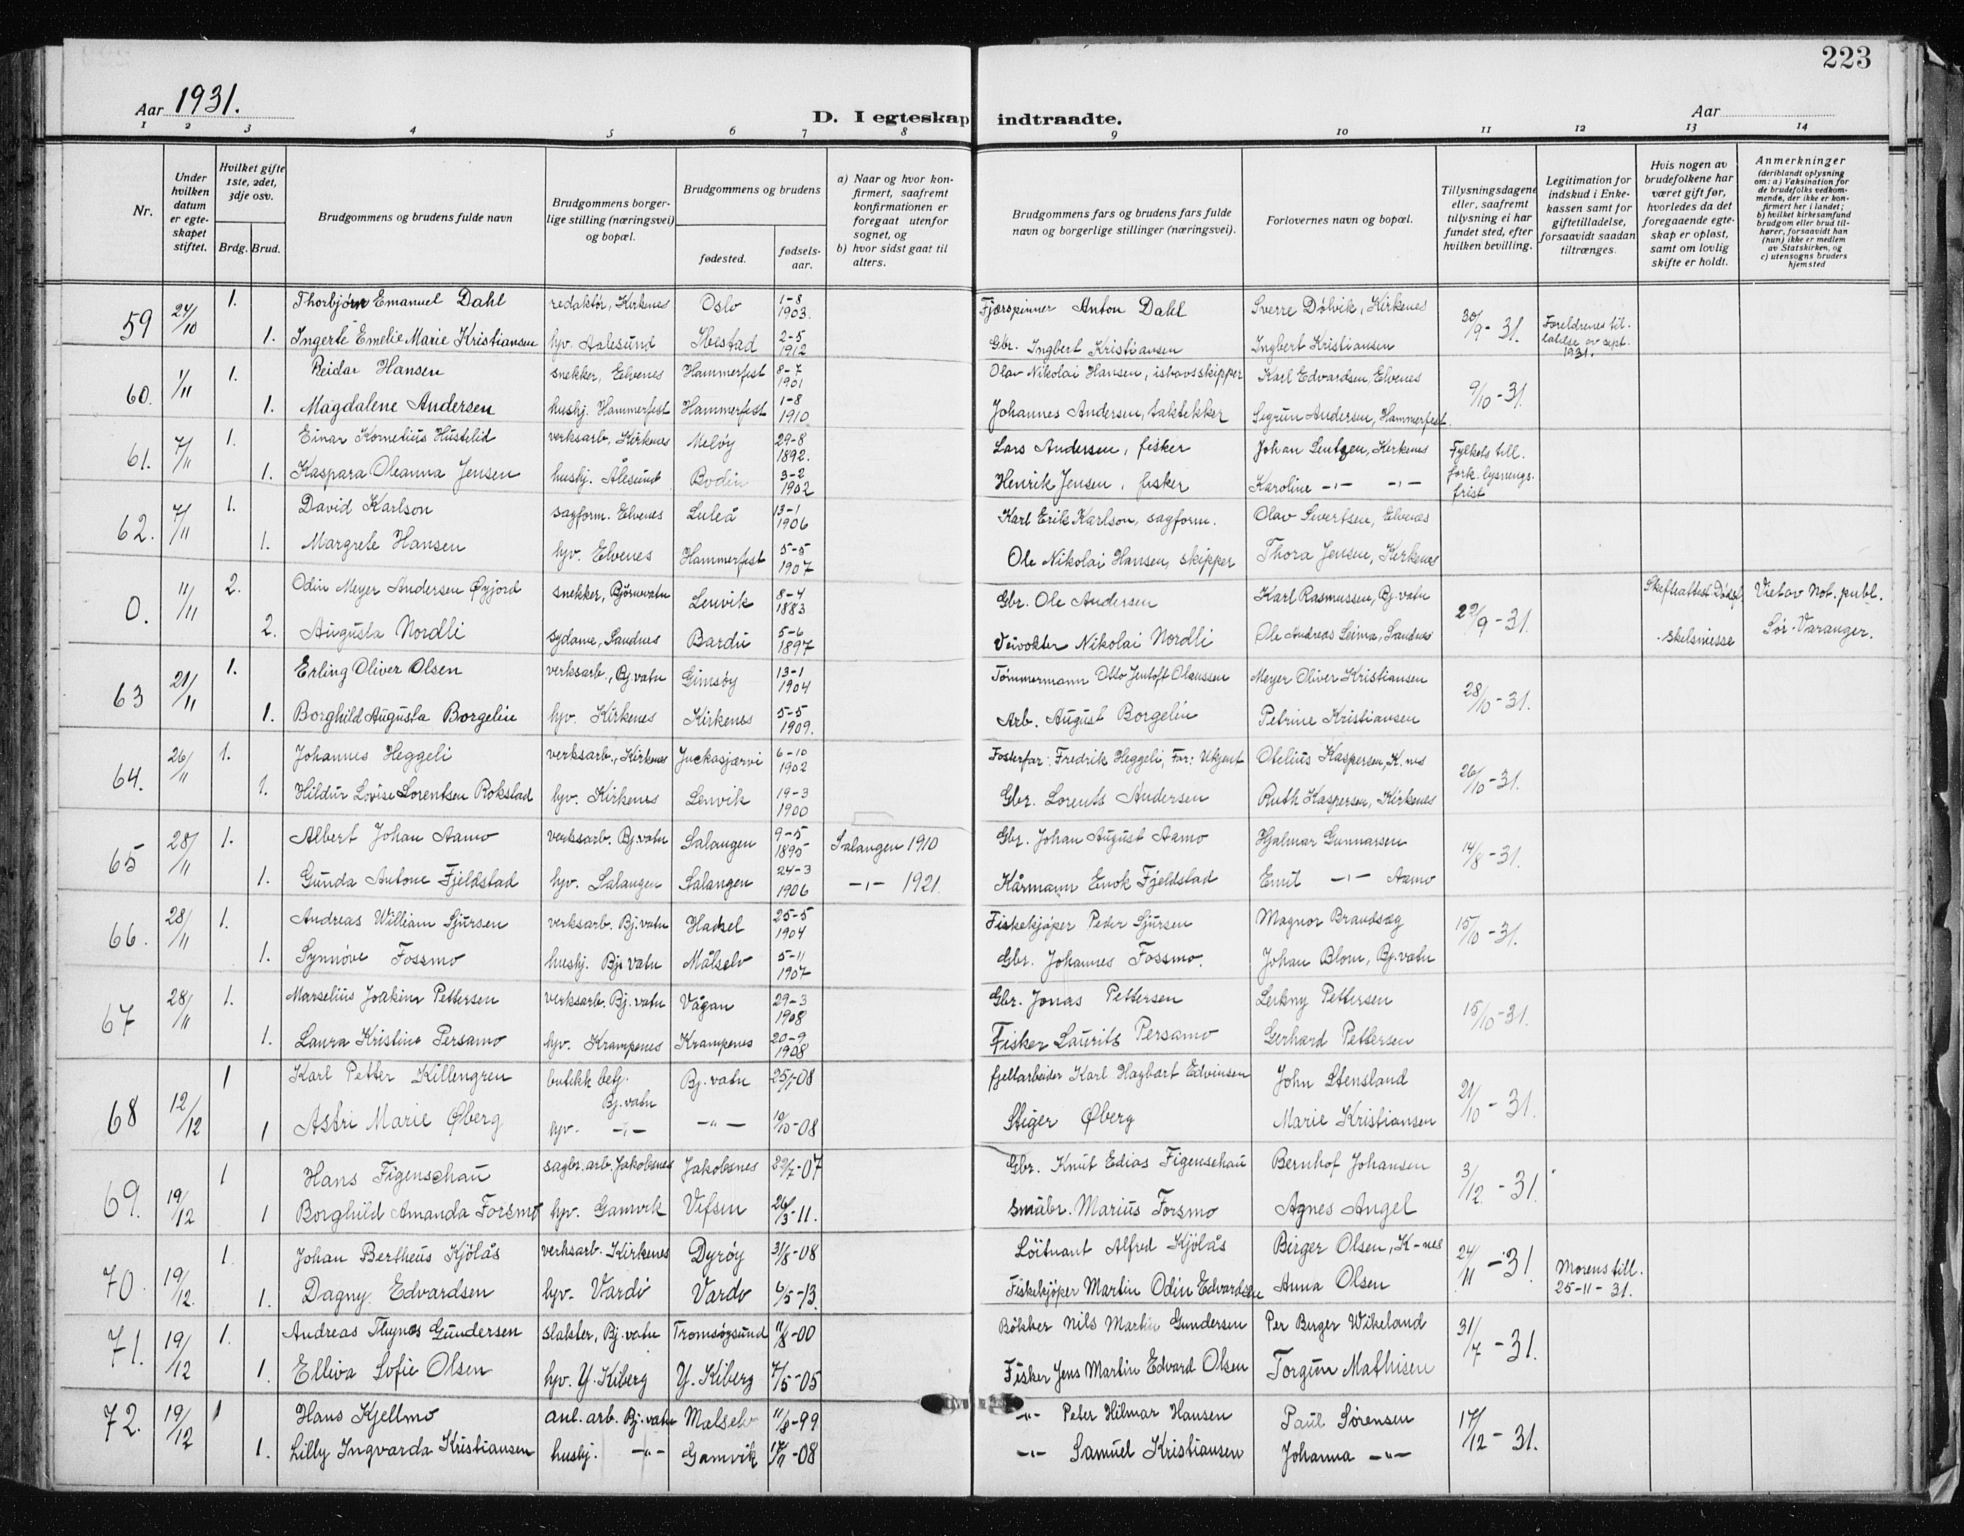 223
Aar 1931.
D. I egteskap indtraadte.
Aar
1 2 3 4 5 6 7 8 9 10 11 12 13 14
Nr.
Under hvilken datum er egteskapet stiftet.
Hvilket gifte 1ste, 2det, 3dje osv.
Brdg. Brud.
Brudgommens og brudens fulde navn
Brudgommens borgerlige stilling (næringsvei) og bopæl.
Brudgommens og brudens
fødested.
fødselsaar.
a) Naar og hvor konfirmert, saafremt konfirmationen er foregaat utenfor sognet, og
b) hvor sidst gaat til alters.
Brudgommens fars og brudens fars fulde navn og borgerlige stillinger (næringsvei).
Forlovernes navn og bopæl.
Tillysningsdagene eller, saafremt tillysning ei har fundet sted, efter hvilken bevilling.
Legitimation for indskud i Enkekassen samt for giftetilladelse, forsaavidt saadan tiltrænges.
Hvis nogen av brudefolkene har været gift før, hvorledes da det foregaaende egteskap er opløst, samt om lovlig skifte er holdt.
Anmerkninger (deriblandt oplysning om: a) Vaksination for de brudefolks vedkommende, der ikke er konfirmert her i landet; b) hvilket kirkesamfund brudgom eller brud tilhører, forsaavidt han (hun) ikke er medlem av Statskirken, og c) utensogns bruders hjemsted
59 24/10 1. Thorbjørn Emanuel Dahl redaktør, Kirkenes Oslo 1-8 1903. Fjærspinner Anton Dahl Sverre Dølvik, Kirkenes 30/9-31. Foreldrenes tillatelse av sept. 1931.
1. Ingerte Emelie Marie Kristiansen hjv. Aalesund Ibestad 2-5 1912 Gbr. Ingbert Kristiansen Ingbert Kristiansen
60. 1/11 1. Reidar Hansen snekker, Elvenes Hammerfest 8-7 1901 Olav Nikolai Hansen, ishavsskipper Karl Edvardsen, Elvenes 9/10-31.
1. Magdalene Andersen hushj. Hammerfest Hammerfest 1-8 1910. Johannes Andersen, taktekker Sigrun Andersen, Hammerfest
61. 7/11 1. Einar Kornelius Hustelid verksarb., Kirkenes Meløy 29-8 1892. Lars Andersen, fisker Johan Lentzen, Kirkenes Fylkets till. fork. lysnings. frist
1. Kaspara Oleanna Jensen hushj. Ålesund Bodin 3-2 1902 Henrik Jensen, fisker Karoline -"- -"-
62. 7/11 1. David Karlson sagform. Elvenes Luleå 13-1 1906 Karl Erik Karlson, sagform. Olav Sivertsen, Elvenes
1. Margrete Hansen hjv. Elvenes Hammerfest 5-5 1907 Ole Nikolai Hansen, skipper Thora Jensen, Kirkenes
0. 11/11 2. Odin Meyer Andersen Øyjord snekker, Bjørnevatn Lenvik 8-4 1883 Gbr. Ole Andersen Karl Rasmussen, Bj.vatn 29/9-31. Skifteattest Dødsf. Viet av Not. publ.
2. Augusta Nordli sydame, Sandnes Bardu 5-6 1897 Veivokter Nikolai Nordli Ole Andreas Seima, Sandnes skilsmisse Sør-Varanger.
63 21/11 1. Erling Oliver Olsen verksarb., Bj.vatn Gimsøy 13-1 1904 Tømmermann Otto Jentoft Olaussen Meyer Oliver Kristiansen 28/10-31.
1. Borghild Augusta Borgelin hjv. Kirkenes Kirkenes 5-5 1909. Arb. August Borgelin Petrine Kristiansen
64. 26/11 1. Johannes Heggeli verksarb., Kirkenes Juckasjærvi 6-10 1902 Fosterfar: Fredrik Heggeli, Far: Ukjent Otelius Kaspersen, K.nes 26/10-31.
1. Hildur Lovise Lorentsen Rokstad hjv. Kirkenes Lenvik 19-3 1900 Gbr. Lorents Andersen Ruth Kaspersen, Kirkenes
65 28/11 1. Albert Johan Aamo verksarb. Bj.vatn Salangen 9-5 1895 Salangen 1910 Gbr. Johan August Aamo Hjalmar Gunnarsen 14/8-31.
1. Gunda Antone Fjeldstad hjv. Salangen Salangen 24-3 1906 -"- 1921. Kårmann Enok Fjeldstad Emil -"- Aamo
66. 28/11 1. Andreas William Sjursen verksarb. Bj.vatn Hadsel 25-5 1904 Fiskekjøper Peder Sjursen Magnor Brandsæg 15/10-31.
1. Synnøve Fossmo hushj. Bj.vatn Målselv 5-11 1907 Gbr. Johannes Fossmo. Johan Blom, Bj.vatn
67 28/11 1. Marselius Joakim Pettersen verksarb. Bj.vatn Vågan 29-3 1908 Gbr. Jonas Pettersen Leikny Pettersen 15/10-31.
1. Laura Kristine Persamo hjv. Krampenes Krampenes 20-9 1908 Fisker Laurits Persamo Gerhard Pettersen
68 12/12 1 Karl Petter Killengren butikkbetj. Bj.vatn Bj.vatn 25/1-08 fjellarbeider Karl Hagbart Edvinsen John Stensland 21/10-31.
1 Astri Marie Øberg hjv. -"- -"- 19/10-08 Stiger Øberg Marie Kristiansen
69. 19/12 1 Hans Figenschau sagbr.arb. Jakobsnes Jakobsnes 22/7-07 Gbr. Knut Edias Figenschau Bernhof Johansen 3/12-31.
1 Borghild Amanda Forsmo hjv. Gamvik Vefsen 26/3-11. Småbr. Marius Forsmo Agnes Angel
70. 19/12. 1 Johan Bertheus Kjölås verksarb. Kirkenes Dyrøy 31/8-08 Löitnant Alfred Kjölås Birger Olsen, K-nes 24/11-31. Morens till. 25-11-31.
1. Dagny Edvardsen hjv. Vardö Vardö 6/5-13. Fiskekjøper Martin Odin Edvardsen Anna Olsen
71. 19/12 1. Andreas Thynes Gundersen slakter, Bj.vatn Tromsøysund 11/8-00 Bökker Nils Martin Gundersen Per Birger Wikeland 31/7-31.
1. Elliva Sofie Olsen hjv. Y. Kiberg Y. Kiberg 7/5-05 Fisker Jens Martin Edvard Olsen Torgun Mathisen
72. 19/12 1 Hans Kjellmo anl. arb. Bj.vatn Målselv 11/8-99 -"- Peter Hilmar Hansen Paul Sørensen 17/12-31.
1. Lilly Ingvarda Kristiansen hushj. -"- Gamvik 17/11-08 -"- Samuel Kristiansen Johanna -"-